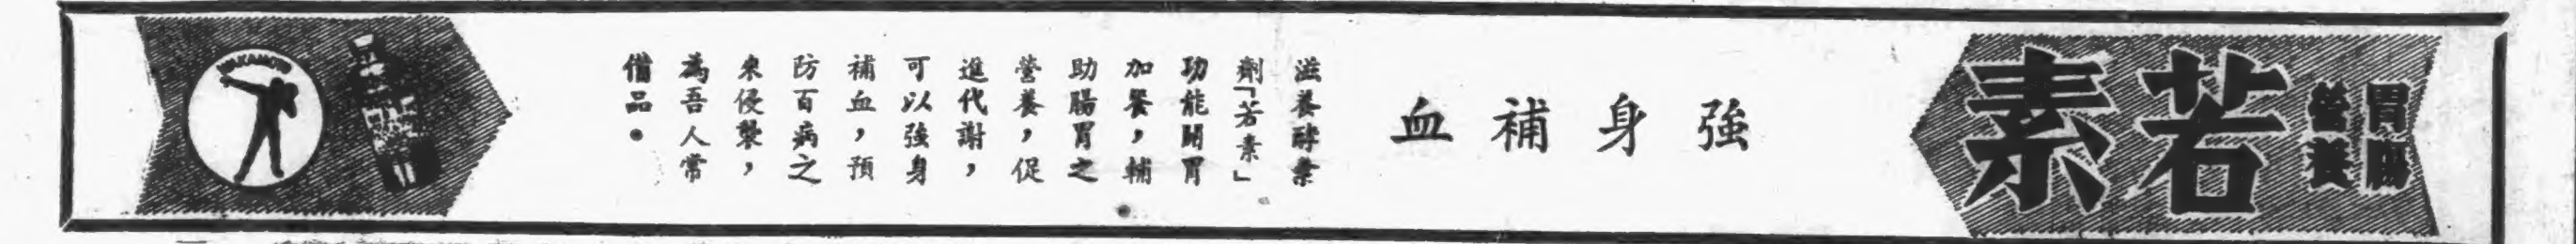 胃腸
營養
若素
強身補血
滋養酵素
劑「若素」
功能開胃
加餐，輔
助腸胃之
營養，促
進代謝，
可以強身
補血，預
防百病之
來侵襲，
為吾人常
備品。
WAKAMOTO